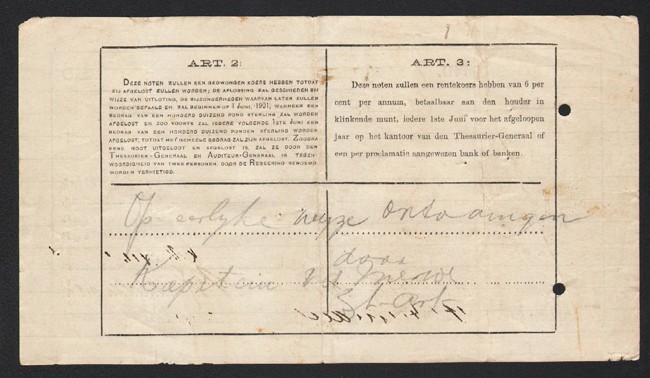 ART. 2:
DEZE NOTEN ZULLEN EEN GEDWONGEN KOERS HEBBEN TOTDAT
ZIJ AFGELOST ZULLEN WORDEN; DE AFLOSSING ZAL GESCHIEDEN BIJ
WIJZE VAN UITLOTING, DE BIJZONDERHEDEN WAARVAN LATER ZULLEN
WORDEN BEPAALD EN ZAL BEGINNEN OP 1 JUNI, 1901, WANNEER EEN
BEDRAG VAN EEN HONDERD DUIZEND POND STERLING ZAL WORDEN
AFGELOST EN ZOO VOORTS ZAL IEDERE VOLGENDE 1STE JUNI EEN
BEDRAG VAN EEN HONDERD DUIZEND PONDEN STERLING WORDEN
AFGELOST, TOTDAT HET GEHEELE BEDRAG ZAL ZIJN AFGELOST. ZOODRA
EENE NOOT UITGELOOT EN AFGELOST IS, ZAL ZE DOOR DEN
THESAURIER-GENERAAL EN AUDITEUR-GENERAAL IN TEGEN-
WOORDIGHEID VAN TWEE PERSONEN, DOOR DE REGEERING BENOEMD,
WORDEN VERNIETIGD.
ART. 3:
Deze noten zullen een rentekoers hebben van 6 per
cent per annum, betaalbaar aan den houder in
klinkende munt, iedere 1ste Juni voor het afgeloopen
jaar op het kantoor van den Thesaurier-Generaal of
een per proclamatie aangewezen bank of banken.
Op eerlyke wyze ontvangen
door
Kapitein v d Merwe
St. Art